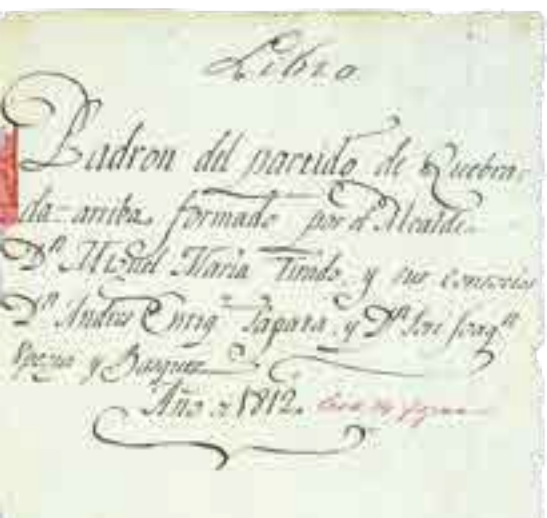 Libro
Padron del partido de Quebra-
da-arriba, formado por el Alcalde
Dn. Miguel Maria Tirado, y sus consocios
Dn. Andres Enriq Zapata, y Dn. Jose Joaqn
y Basquez
Año de 1812.